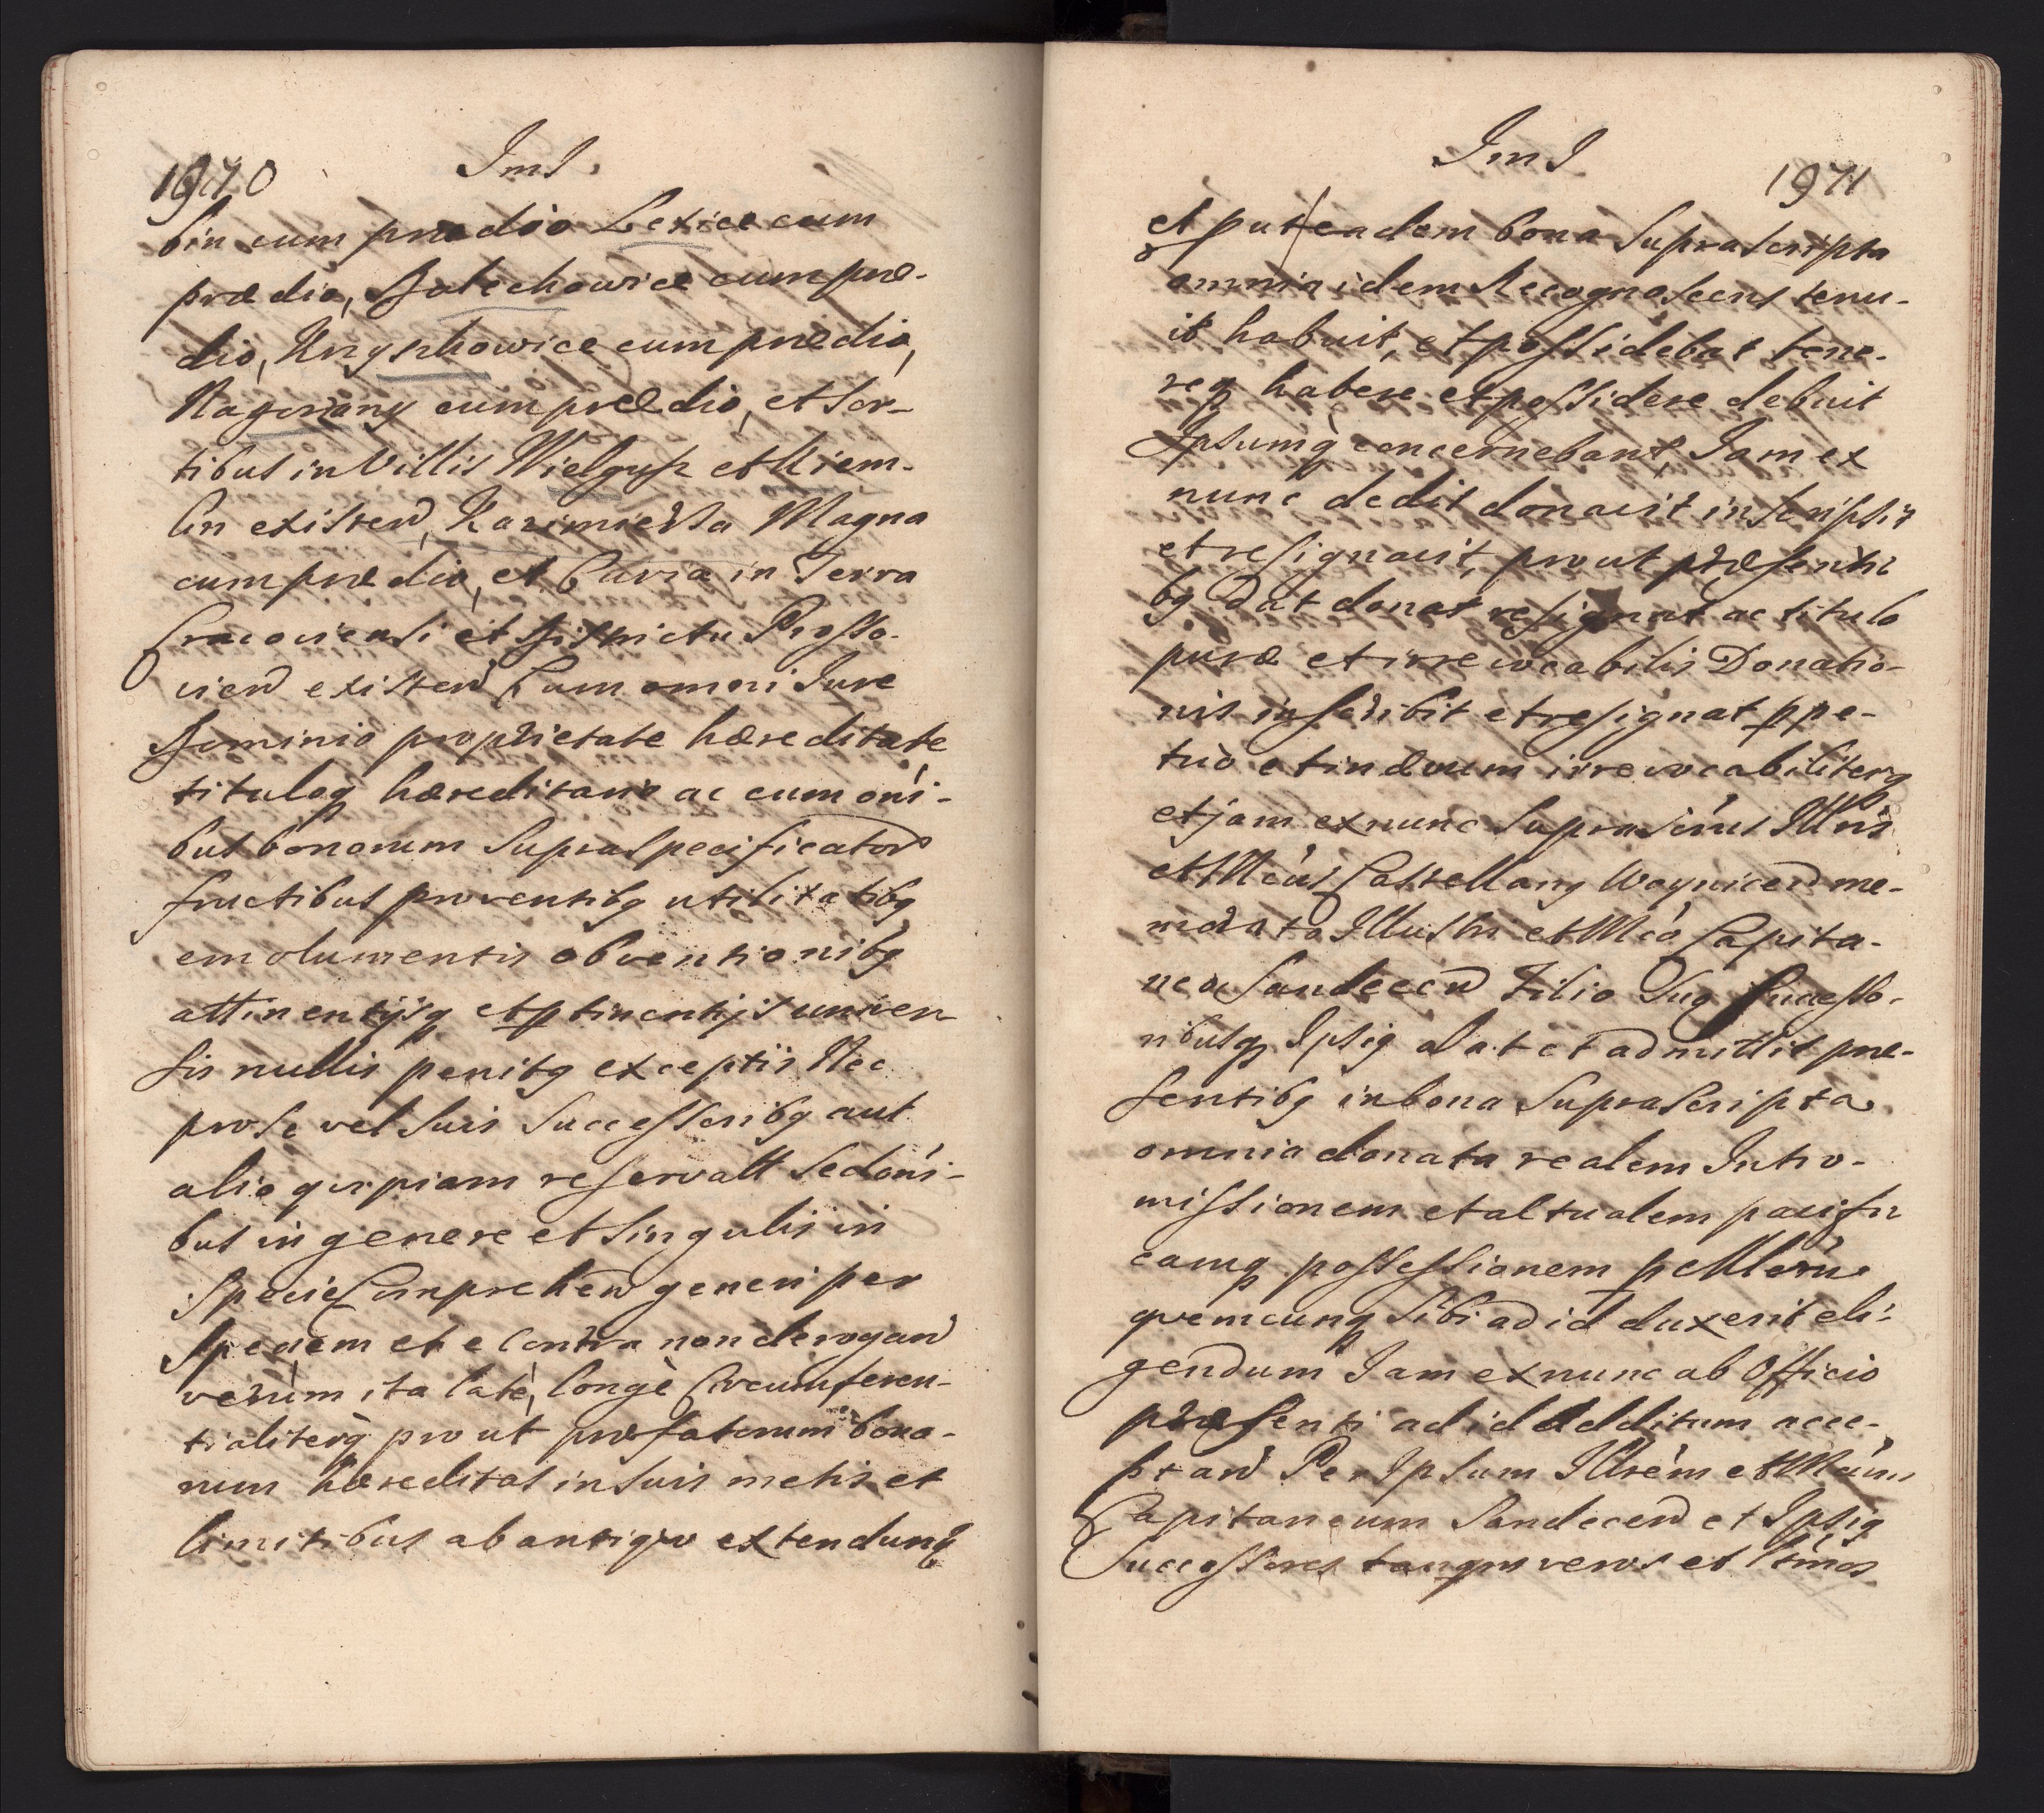 1970
ImI
bin cum prædio Lexice cum
prædio, Dalechowice cum præ-
dio, Krzyszkowice cum prædio,
Nagorzany cum prædio, et Sor-
tibus in Villis Wielgusz et Kiem-
lin existend, Kazimierza Magna
cum prædio, et Curia in Terra
Cracoviensi et Districtu Prosso-
viend existend Cum omni Jure
Dominio proprietate hæreditate
tituloq hæreditario ac cum oni-
bus bonorum Supraspecificator
fructibus proventibq utilitatibq
emolumentis obventionibq
attinentijsq et ptinentijs univer-
sis nullis penitq exceptis Nec
pro Se vel Suis Successoribq aut
alio quipiam reservatt Sed oni-
bus in genere et Singulis in
Specie Comprehend generi per
Speciem et e Contra non derogand
verùm ita latè, longè Circumferen-
tialiterq prout præfatorum bono-
rum hæreditas in Suis metis et
limitibus ab antiquo extendunt
ImI
1971
et put eadem bona Suprascripta
omnia idem Recognoscens tenu-
it habuit, et possidebat tene-
req habere et possidere debuit
Ipsumq concernebant, Jam ex
nunc dedit donavit inscripsit
et resignavit, prout præsenti-
bq Dat donat resignat ac titulo
puræ et irrevocabilis Donatio-
nis inscribit et resignat ppe-
tuò et in ævum irrevocabiliterq
et jam ex nunc Suprascius Illris
et Mcus Castellanq Woynicend me-
morato Illustri et Mco Capita-
neo Sandecend Filio Suo Successo-
ribusq Ipsiq dat et admittit præ-
sentibq in bona Suprascripta
omnia donata realem Intro-
missionem et actualem pacifi-
camq possessionem p Mlem
quemcunq Sibi ad id duxerit eli-
gendum Jam ex nunc ab Officio
præsenti ad id Additum acce-
ptand Per Ipsum Illrem et Mcum
Capitaneum Sandecend et Ipsiq
Successores tanqm veros et ltimos